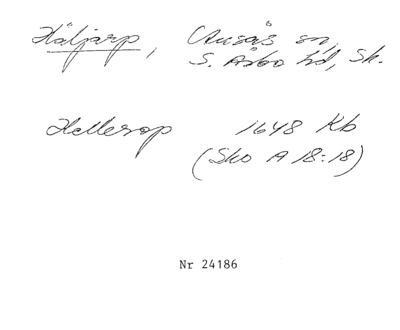 Häljarp, Ausås sn,
S. Åsbo hd, Sk.
Hellerop 1648 Kb
(Sko A 18:18)
Nr 24186